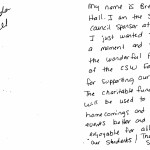 My name is Bre
Hall. I am the S
Council Sponsor at
I just wanted
a moment and
the wonderful f
of the CSW Fo
for supporting our
The charitable fun
will be used to
homecomings and
events better and
enjoyable for all
our students! Tha